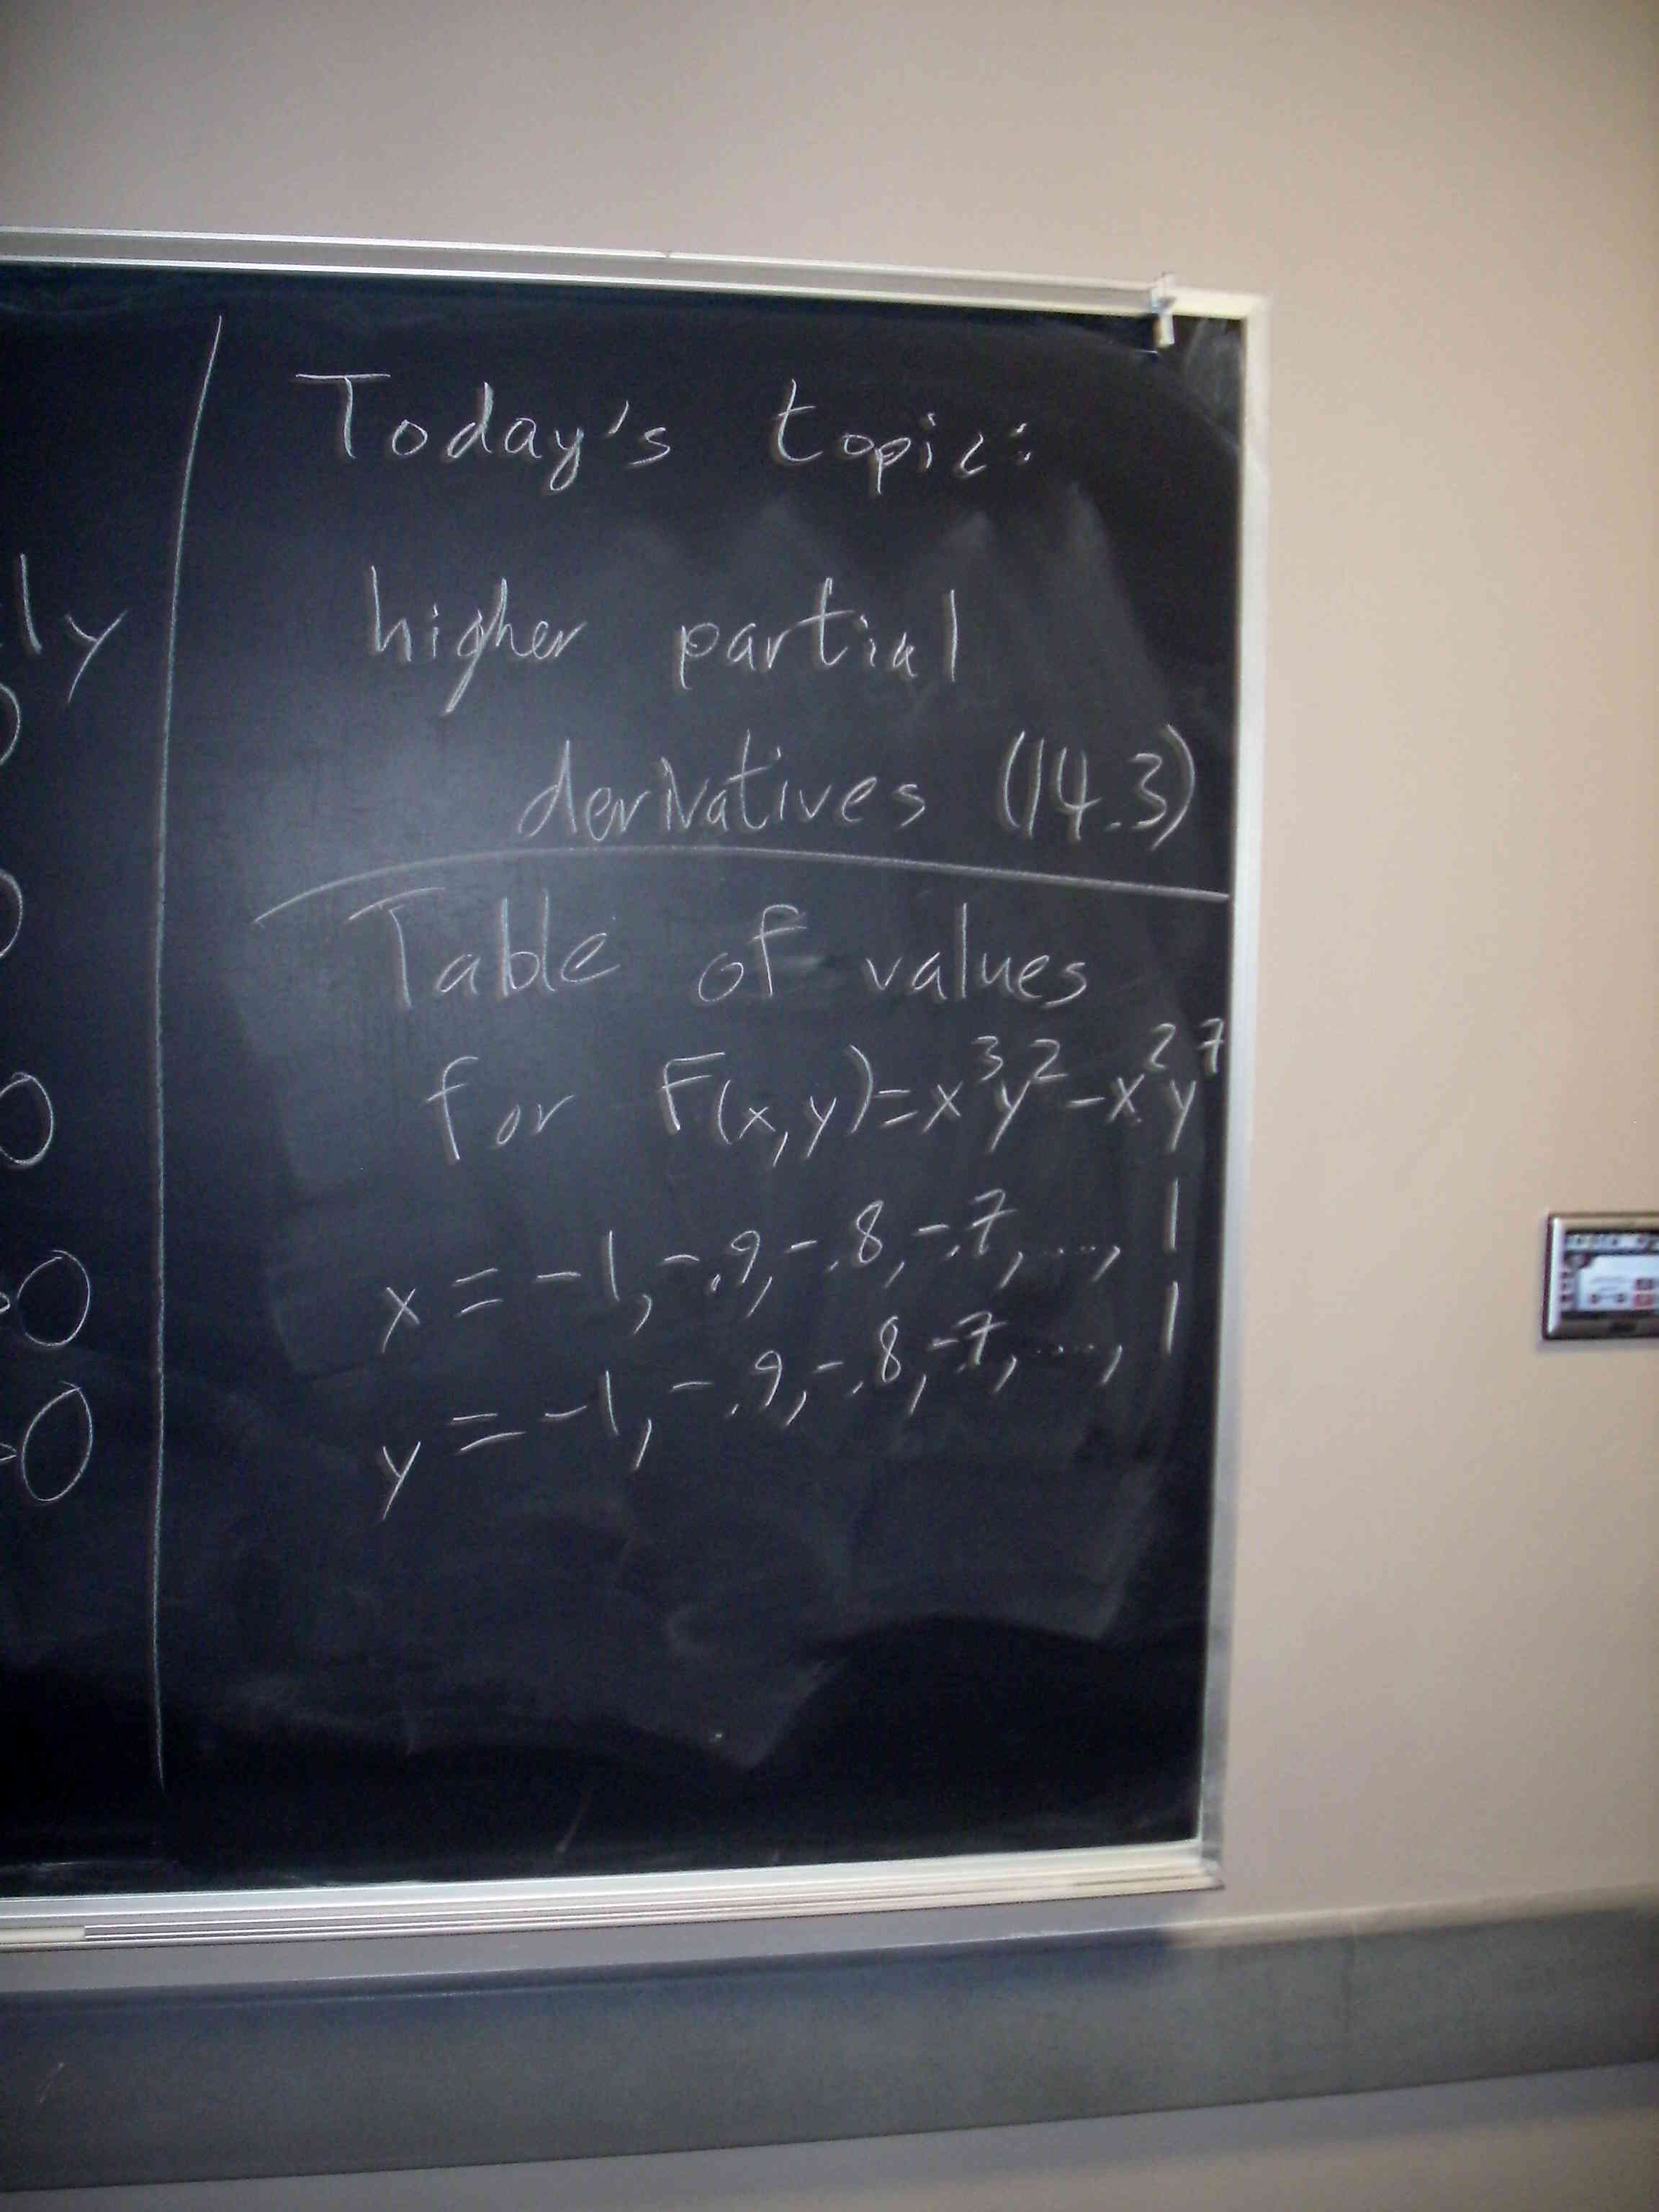 Today's topic:
higher partial
derivatives (14.3)
Table of values
for F(x,y)=x³y²-x²y⁷
x = -1, -.9, -.8, -.7, ...., 1
y = -1, -.9, -.8, -.7, ...., 1
ly
0
0
0
0